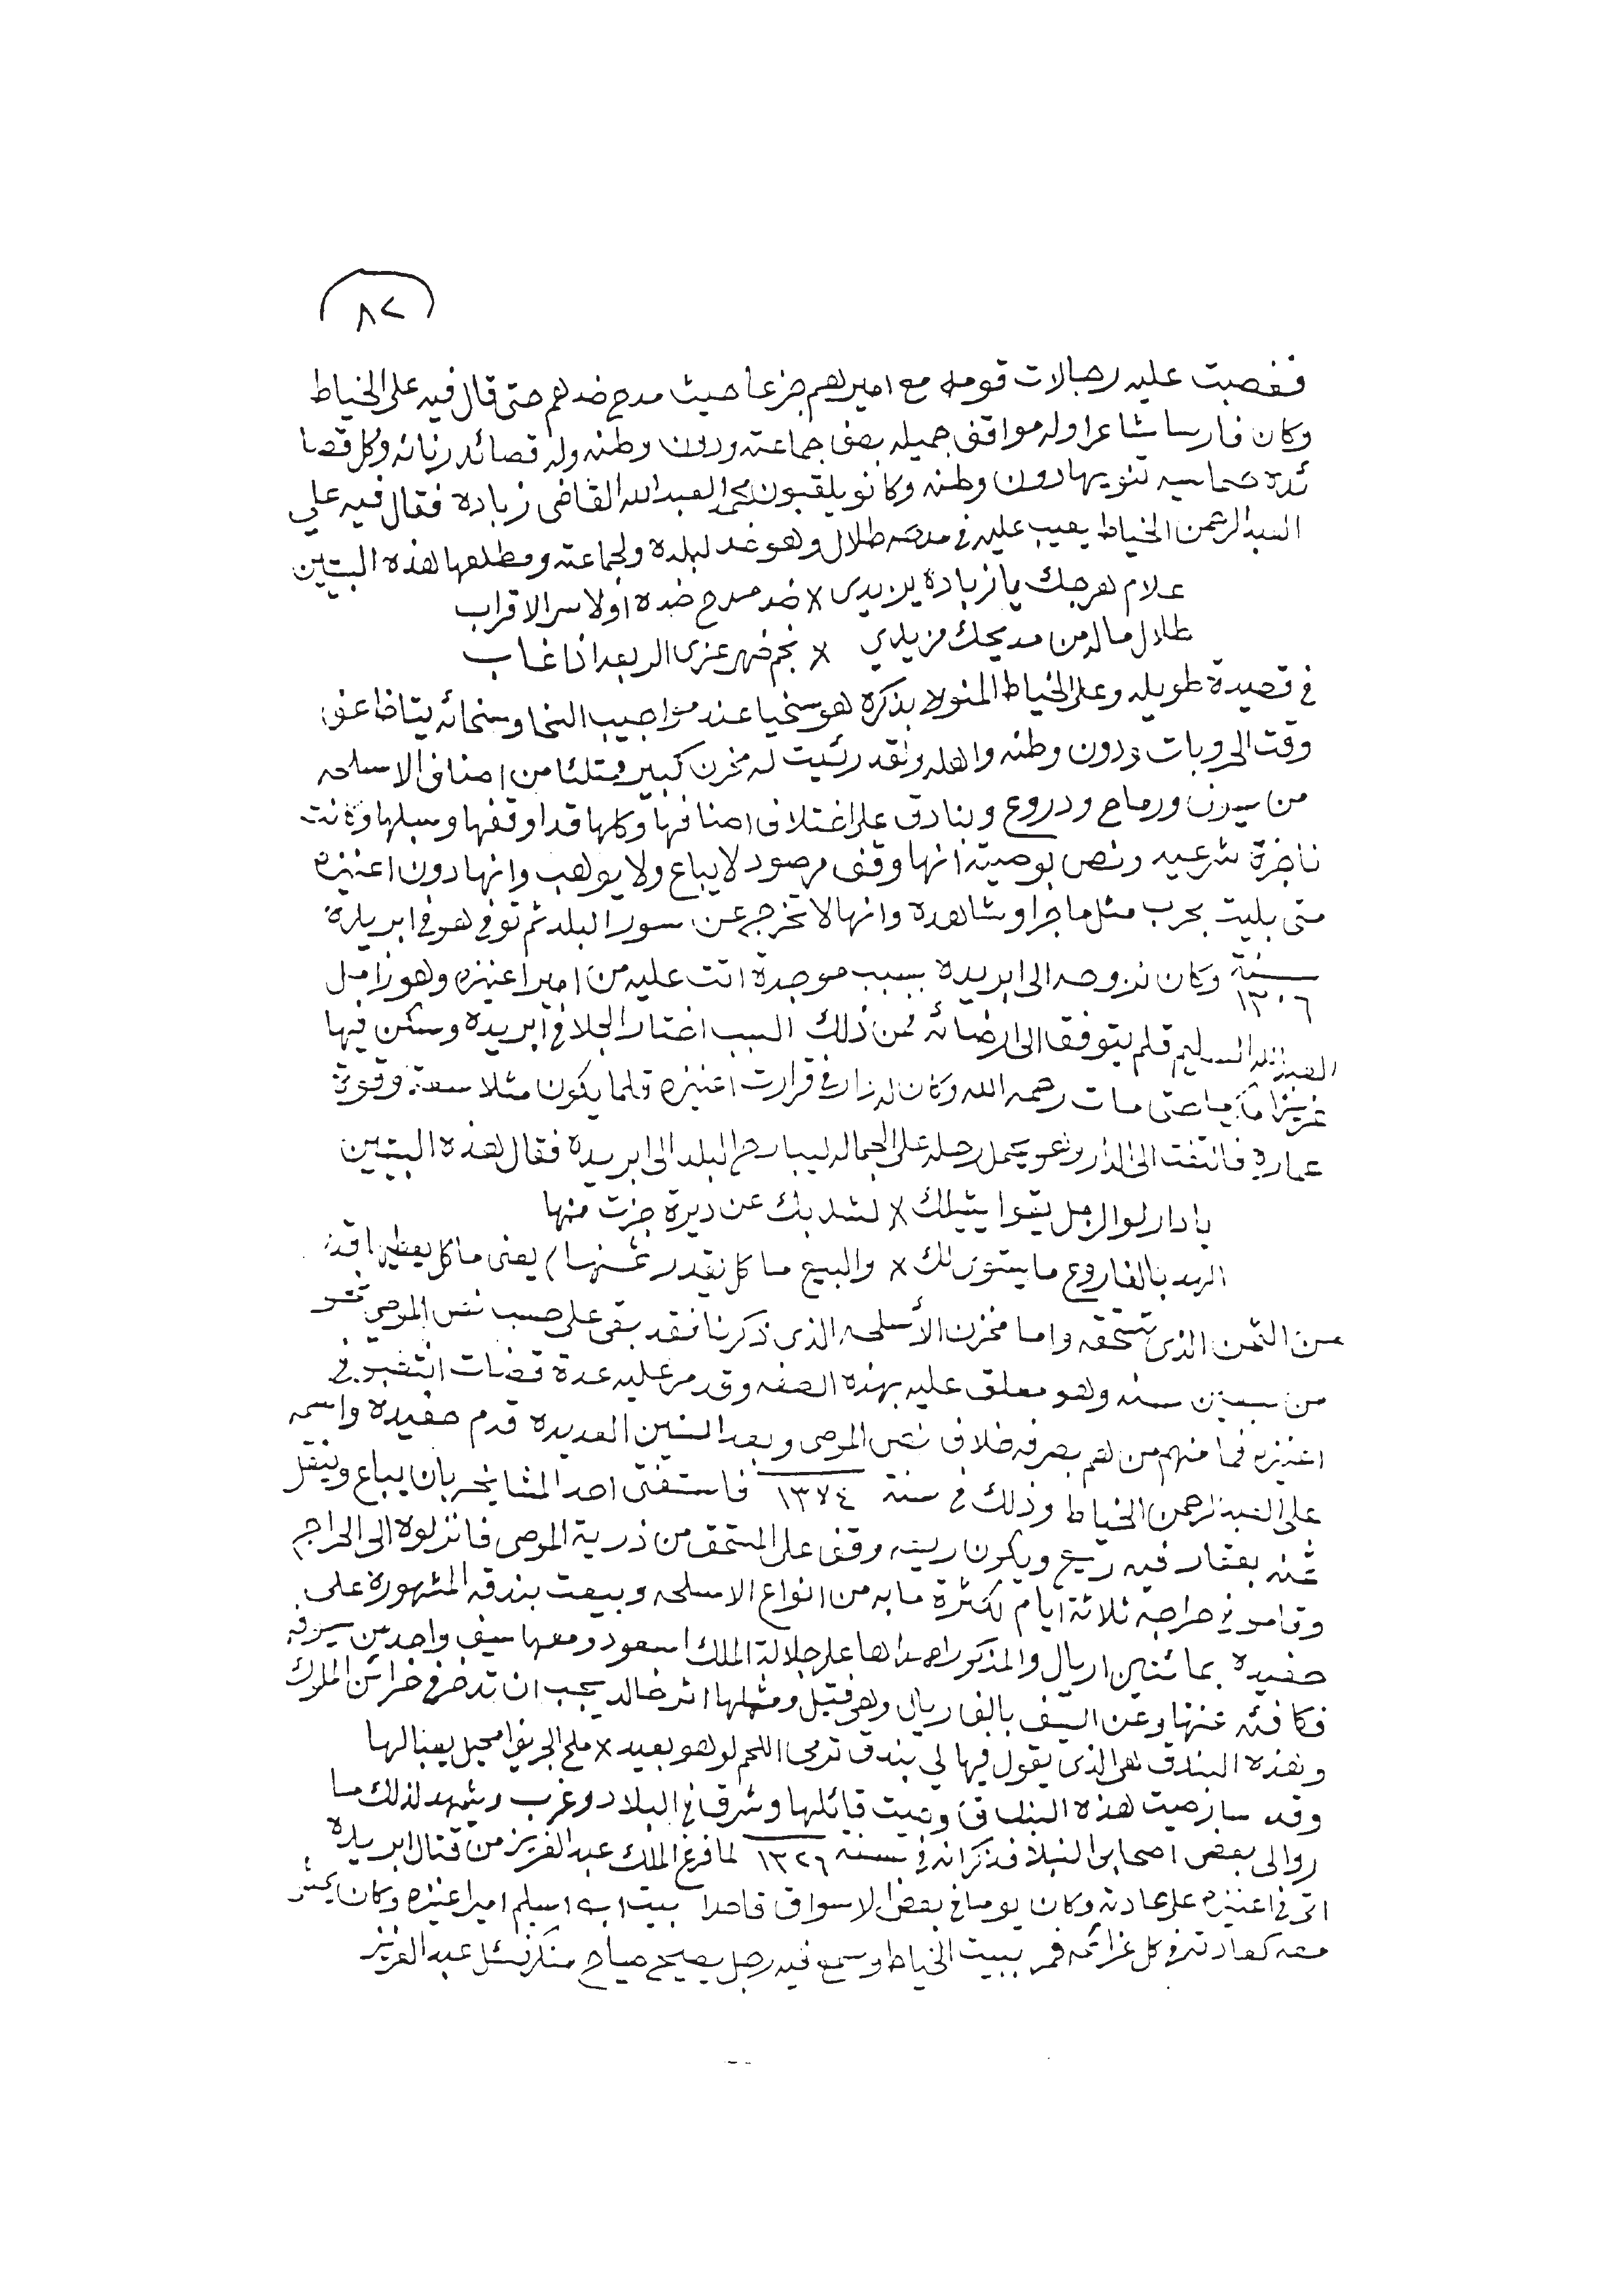 ٨٢
فغصبت عليه رجالات قومه مع اميرهم جزعا حيث مدح ضدهم حتى قال فيه على الخياط
وكان فارسا شاعرا وله مواقف جميله بصف جماعته ودون وطنه وله قصائد رنانه وكل قصا
ئده حماسيه تنويها دون وطنه وكانو يلقبون العبدالله القاضى زياده فقال فيه علي
العبدالرحمن الخياط يعيب عليه في مدحه طلال وهو ضد لبلده ولجماعته ومطلعها هذه البيتين
علام هرجك يا زيادة يزيدى × ضد مدح ضده اولاسر الاقراب
طلال ماله من مديحك مزيدي × نجم ضهر عزى الربعه اذا غاب
في قصيدة طويله وعلى الخياط المنولا بذكره هو سخيا عند مواجيب السخا وسخائه يتاظاعف
وقت الحروبات دون وطنه واهله ولقد رئيت له مخزن كبير ممتلئا من اصناف الاسلحه
من سيوف ورماح ودروع وبنادق على اختلاف اصنافها وكلها قد اوقفها وسبلها وكانت
ناجزة شرعيه ونص بوصيته انها وقف مرصود لايباع ولا يوهب وانها دون اعنيزه
متى بليت بحرب مثل ماجرا وشاهده وانها لا تخرج عن سور البلد ثم توفى هو في ابريدة
سنة ١٣٠٦ وكان نزوحه الى ابريده بسبب موجدة اتت عليه من امير اعنيزه وهو زامل
العبدالله السليم فلم يتوفق الى ارضائه فمن ذلك السبب اختار الجلا في ابريده وسكن فيها
عزيزا حتى مات رحمه الله وكان له دار في قرارت اعنيزه قلما يكون مثلا سعة وقوة
عماره فالتفت الى الدار وهو يحمل رحله على الجماله ليبارح البلد الى ابريده فقال هذه البيتين
يا دار لو الرجل يقوا يشيلك × لشد بك عن ديرة جزت منها
الهد بالفاروع ما يستوى لك × والبيع ما كل نقدر ثمنها) يعنى ما كل يعطيها
عن الثمن الذى تستحقه واما مخزن الأسلحه الذى ذكرنا فقد بقى على حسب نص الموصي
من سبعين سنه وهو مغلق عليه بهذه الصفه وقد مر عليه عدة قضات في
اعنيزه فما منهم من هم بصرفه خلاف نص الموصى وبعد السنين العديده قدم حفيده واسمه
على العبدالرحمن الخياط وذلك في سنة ١٣٧٤ فاستفتى احد المشايخ بان يباع وينقل
ثمنه بعقار فيه ريع ويكون ريعه وقف على المستحق من ذرية الموصى فانزلوه الى الحراج
وقامو في حراجه ثلاثة ايام لكثرة مابه من انواع الاسلحه وبيعت بندقه المشهورة على
حفيده بمائتين اريال والمذكور اهداها على جلالة الملك اسعود ومعها سيف واحد من سيوفه
فكافئه عنها وعن السيف بالف اريال وهي فتيل ومثلها اثر خالد يجب ان تدخر في خزائن الملوك
وهذه البندق هى الذى يقول فيها لي بندق ترمى اللحم لو هو بعيد × ملح الجريفا محيل يعبالها
وقد سار صيت هذه البندق وصيت قائلها وشرق في البلاد وغرب ويشهد لذلك ما
روا لى بعض اصحابى النبلا فذكر انه في سنة ١٣٢٦ لما فرغ الملك عبدالعزيز من قتال ابريده
اتى في اعنيزه على عادته وكان يوما في بعض الاسواق قاصدا بيت اسليم امير اعنيزه وكان
معه كعادته في كل غزائه فمر ببيت الخياط وسمع فيه رجل يصيح صياح منكر فسئل عبدالعزيز